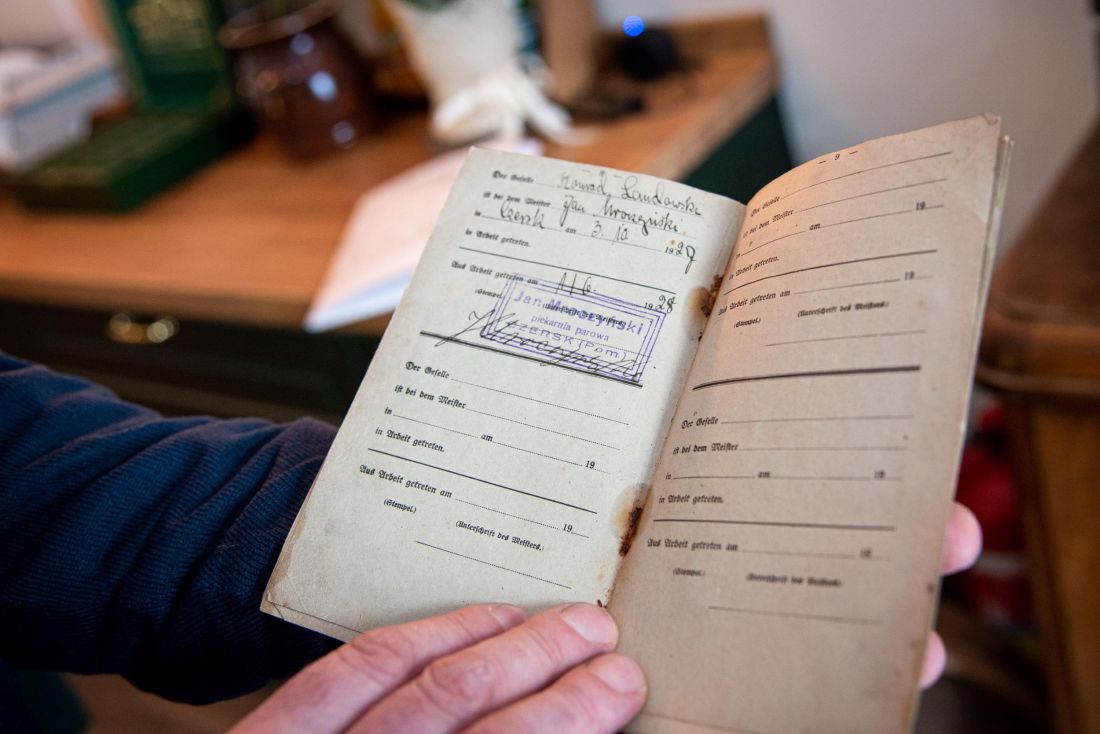 Der Geselle Konrad Landowski
ist bei dem Meister Jan Mroszyński.
in Czersk am 3. 10 1927
in Arbeit getreten.
Aus Arbeit getreten am 1/6. 1928
(Stempel.)
Jan Mroszyński
piekarnia parowa
CZERSK (Pom.)
Der Geselle
ist bei dem Meister
in am 19
in Arbeit getreten.
Aus Arbeit getreten am 19
(Stempel.)
(Unterschrift des Meisters.)
— 9 —
Der Geselle
ist bei dem Meister
in am 19
in Arbeit getreten.
Aus Arbeit getreten am 19
(Stempel.) (Unterschrift des Meisters.)
Der Geselle
ist bei dem Meister
in am 19
in Arbeit getreten.
Aus Arbeit getreten am 19
(Stempel.) (Unterschrift des Meisters.)